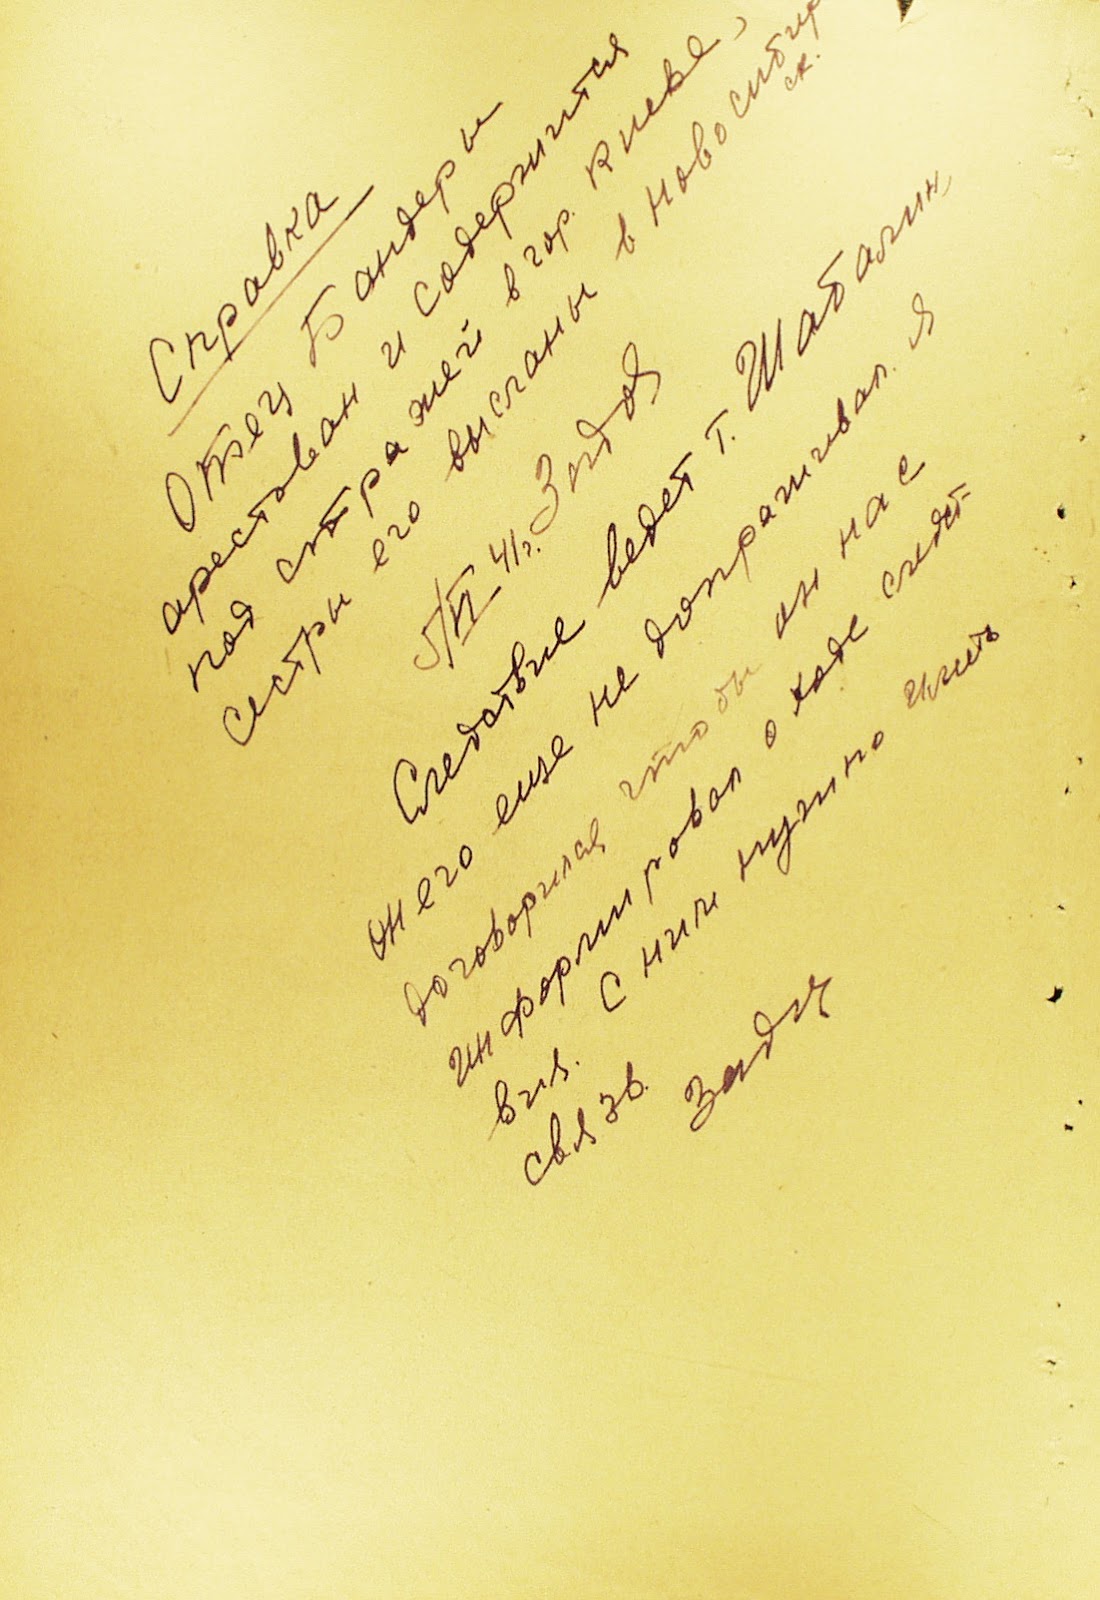 Справка
Отец Бандеры
арестован и содержится
под стражей в гор. Киеве,
сестры его высланы в Новосибир
ск.
5/VI 41г.
Следствие ведет т. Шабалин,
он его еще не допрашивал. Я
договорился чтобы он нас
информировал о ходе следст-
вия. С ним нужно иметь
связь.